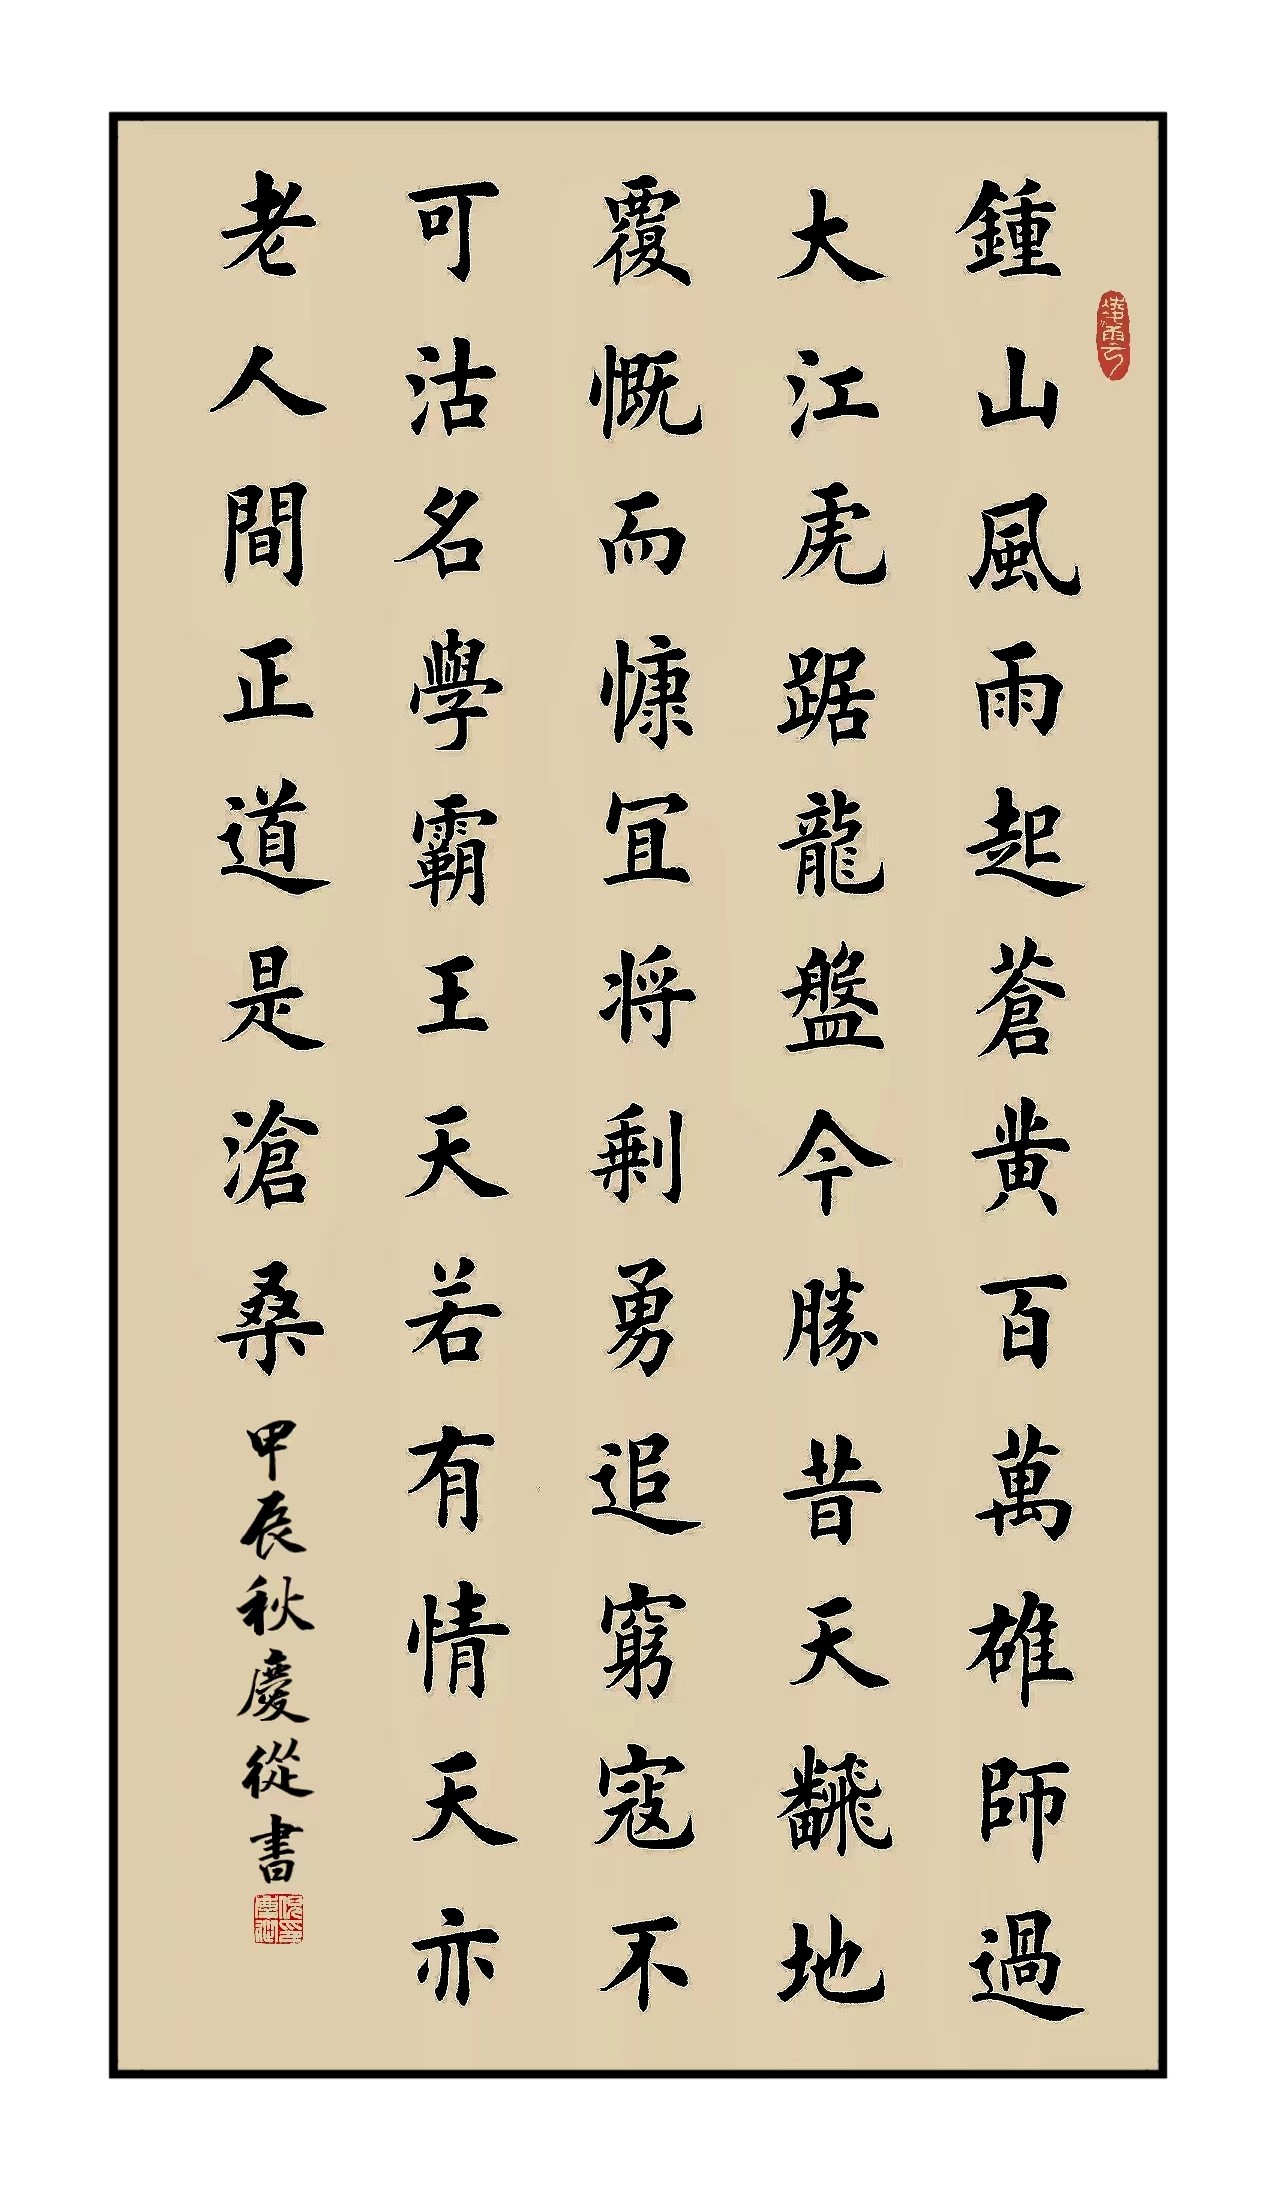 鍾山風雨起蒼黄百萬雄師過
大江虎踞龍盤今勝昔天飜地
覆慨而慷冝将剩勇追窮寇不
可沽名學霸王天若有情天亦
老人間正道是滄桑
甲辰秋慶從書